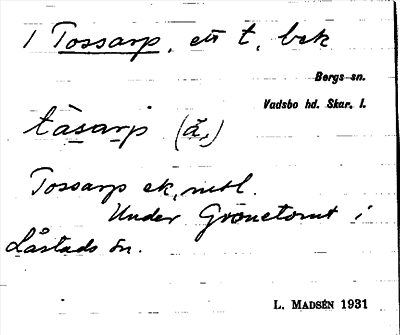 1 Tossarp, ett t, bek
Bergs sn.
Vadsbo hd. Skar. l.
tåsarp (å,)
Tossarp ek, mtl.
Under Grönetomt i
Låstads sn.
L. MADSÉN 1931